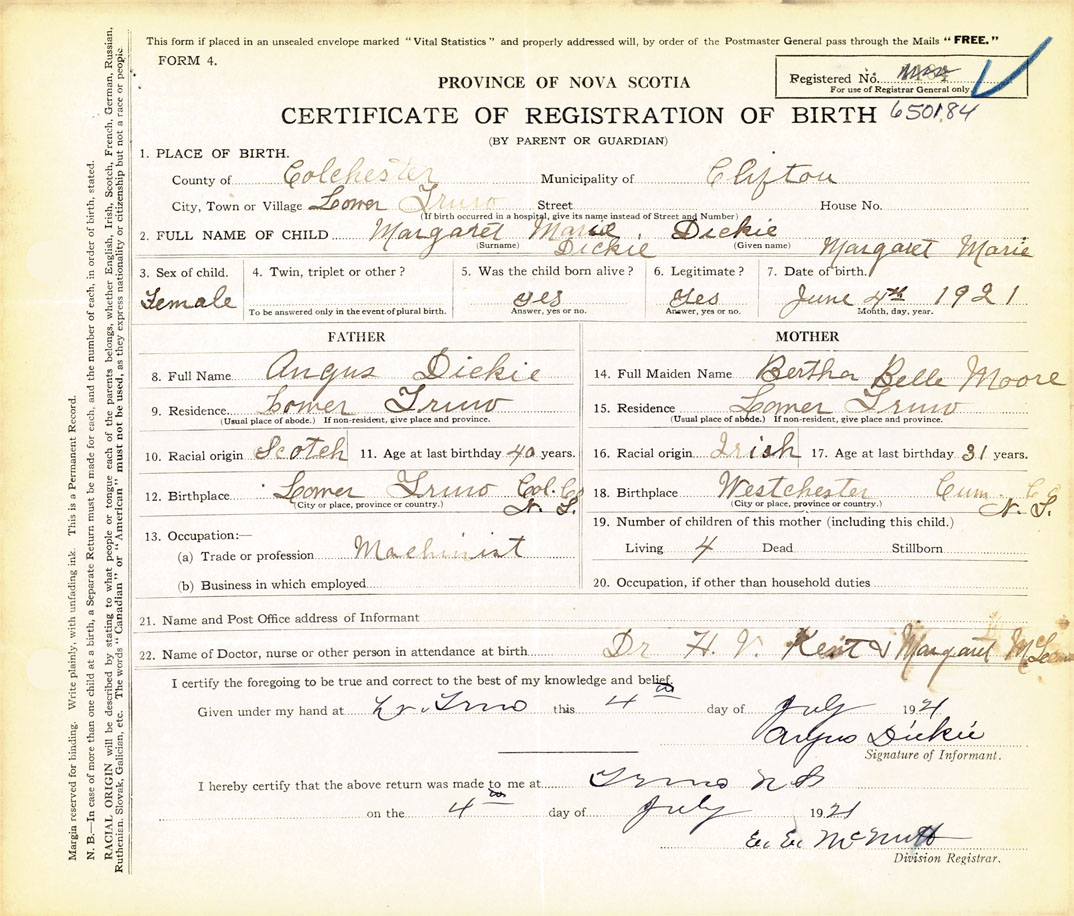 This form if placed in an unsealed envelope marked "Vital Statistics" and properly addressed will, by order of the Postmaster General pass through the Mails "FREE."
FORM 4.
Registered No.
For use of Registrar General only
PROVINCE OF NOVA SCOTIA
CERTIFICATE OF REGISTRATION OF BIRTH 650184
(BY PARENT OR GUARDIAN)
1. PLACE OF BIRTH.
County of Colchester Municipality of Clifton
City, Town or Village Lower Truro Street House No.
(If birth occurred in a hospital, give its name instead of Street and Number)
2. FULL NAME OF CHILD Margaret Marie Dickie
(Surname) Dickie (Given name) Margaret Marie
3. Sex of child. 4. Twin, triplet or other? 5. Was the child born alive? 6. Legitimate? 7. Date of birth.
Female yes Yes June 4th 1921
To be answered only in the event of plural birth. Answer, yes or no. Answer, yes or no. Month, day, year.
FATHER
8. Full Name Angus Dickie
9. Residence Lower Truro
(Usual place of abode.) If non-resident, give place and province.
10. Racial origin Scotch 11. Age at last birthday 40 years.
12. Birthplace Lower Truro Col. Co
(City or place, province or country.) N. S.
13. Occupation:—
(a) Trade or profession Machinist
(b) Business in which employed
MOTHER
14. Full Maiden Name Bertha Belle Moore
15. Residence Lower Truro
(Usual place of abode.) If non-resident, give place and province.
16. Racial origin Irish 17. Age at last birthday 31 years.
18. Birthplace Westchester Cum. Co
(City or place, province or country.) N. S.
19. Number of children of this mother (including this child.)
Living 4 Dead Stillborn
20. Occupation, if other than household duties
21. Name and Post Office address of Informant
22. Name of Doctor, nurse or other person in attendance at birth Dr H. V. Kent & Margaret
I certify the foregoing to be true and correct to the best of my knowledge and belief.
Given under my hand at Lr. Truro this 4th day of July 1921
Angus Dickie
Signature of Informant.
I hereby certify that the above return was made to me at Truro N S
on the 4th day of July 1921
E. E. McNutt
Division Registrar.
Margin reserved for binding. Write plainly, with unfading ink. This is a Permanent Record.
N. B.—In case of more than one child at a birth, a Separate Return must be made for each, and the number of each, in order of birth, stated.
RACIAL ORIGIN will be described by stating to what people or tongue each of the parents belongs, whether English, Irish, Scotch, French, German, Russian,
Ruthenian, Slovak, Galician, etc. The words "Canadian" or "American" must not be used, as they express nationality or citizenship but not a race or people.